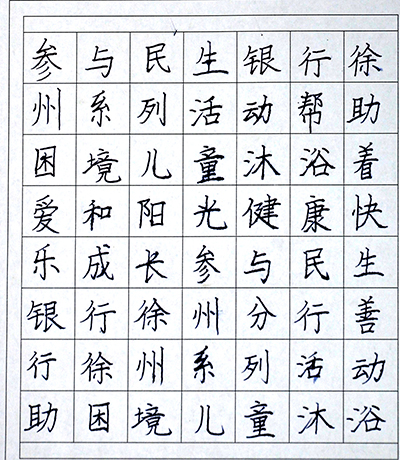 参与民生银行徐
州系列活动帮助
困境儿童沐浴着
爱和阳光健康快
乐成长参与民生
银行徐州分行善
行徐州系列活动
助困境儿童沐浴